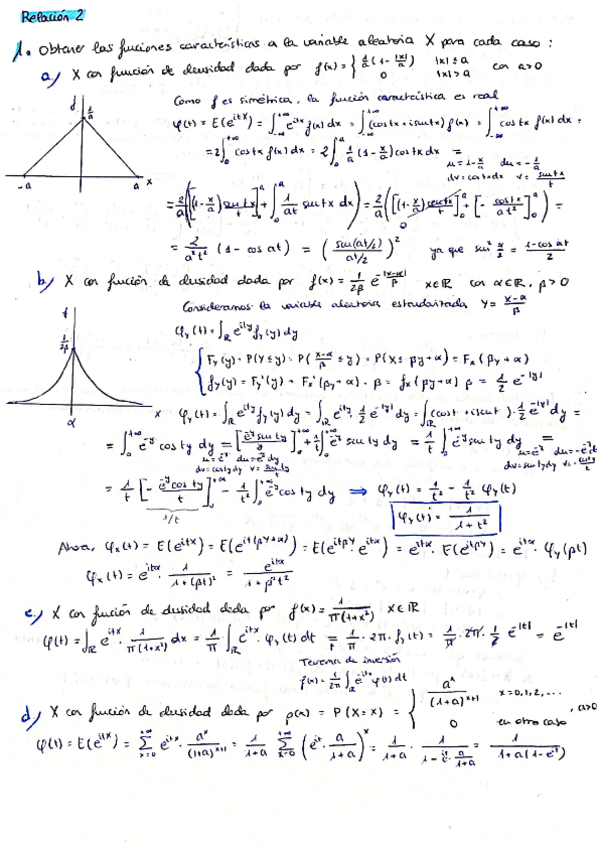 Relación 2
1. Obtener las funciones características a la variable aleatoria X para cada caso:
a) X con función de densidad dada por f(x) = { 1/a (1 - |x|/a) |x| ≤ a
0 |x| > a con a>0
Como f es simétrica, la función característica es real
φ(t) = E(e^{itX}) = ∫_{-∞}^{+∞} e^{itx} f(x) dx = ∫_{-∞}^{+∞} (cos tx + i sen tx) f(x) = ∫_{-∞}^{+∞} cos tx f(x) dx =
= 2∫_0^{+∞} cos tx f(x) dx = 2∫_0^a 1/a (1 - x/a) cos tx dx =
u = 1 - x/a du = -1/a
dv = cos tx dx v = sen tx / t
= 2/a ( [(1 - x/a) sen tx / t]_0^a + ∫_0^a 1/(at) sen tx dx ) = 2/a ( [(1 - x/a) sen tx / t]_0^a + [- cos tx / (a t²)]_0^a ) =
= 2/(a² t²) (1 - cos at) = ( sen(at/2) / (at/2) )² ya que sen² α/2 = (1 - cos at)/2
f
1/a
-a a x
b) X con función de densidad dada por f(x) = 1/(2β) e^{-|x-α|/β} x∈ℝ con α∈ℝ, β>0
Consideramos la variable aleatoria estandarizada Y = (X-α)/β
φ_Y(t) = ∫_ℝ e^{ity} f_Y(y) dy
{ F_Y(y) = P(Y ≤ y) = P( (X-α)/β ≤ y) = P(X ≤ βy+α) = F_X(βy+α)
f_Y(y) = F_Y'(y) = F_X'(βy+α)·β = f_X(βy+α) β = 1/2 e^{-|y|}
f
1/2β
α x
φ_Y(t) = ∫_ℝ e^{ity} f_Y(y) dy = ∫_ℝ e^{ity} · 1/2 e^{-|y|} dy = ∫_ℝ (cos t + i sen t) · 1/2 e^{-|y|} dy =
= ∫_0^{+∞} e^{-y} cos ty dy = [e^{-y} sen ty / t]_0^{+∞} + 1/t ∫_0^{+∞} e^{-y} sen ty dy = 1/t ∫_0^{+∞} e^{-y} sen ty dy =
u = e^{-y} du = -e^{-y} dy
dv = cos ty dy v = sen ty / t
u = e^{-y} du = -e^{-y} dt
dv = sen ty dy v = - cos ty / t
= 1/t [ - e^{-y} cos ty / t ]_0^{+∞} - 1/t² ∫_0^{+∞} e^{-y} cos ty dy ⟹ φ_Y(t) = 1/t² - 1/t² φ_Y(t)
1/t
φ_Y(t) = 1/(1+t²)
Ahora, φ_X(t) = E(e^{itX}) = E(e^{it(βY+α)}) = E(e^{itβY} · e^{itα}) = e^{itα} · E(e^{itβY}) = e^{itα} · φ_Y(βt)
φ_X(t) = e^{itα} · 1/(1+(βt)²) = e^{itα}/(1+β²t²)
c) X con función de densidad dada por f(x) = 1/(π(1+x²)) x∈ℝ
φ(t) = ∫_ℝ e^{itx} · 1/(π(1+x²)) dx = 1/π ∫_ℝ e^{itx} · φ_Y(t) dt = 1/π · 2π · f_Y(t) = 1/π · 2π · 1/2 e^{-|t|} = e^{-|t|}
Teorema de inversión
f(x) = 1/2π ∫_ℝ e^{-itx} φ(t) dt
d) X con función de densidad dada por p(x) = P(X=x) = { a^x/(1+a)^{x+1} x=0,1,2,...
0 en otro caso, a>0
φ(t) = E(e^{itX}) = Σ_{x=0}^{+∞} e^{itx} · a^x/(1+a)^{x+1} = 1/(1+a) Σ_{x=0}^{+∞} ( e^{it} · a/(1+a) )^x = 1/(1+a) · 1/(1 - e^{it} · a/(1+a)) = 1/(1+a(1-e^{it}))